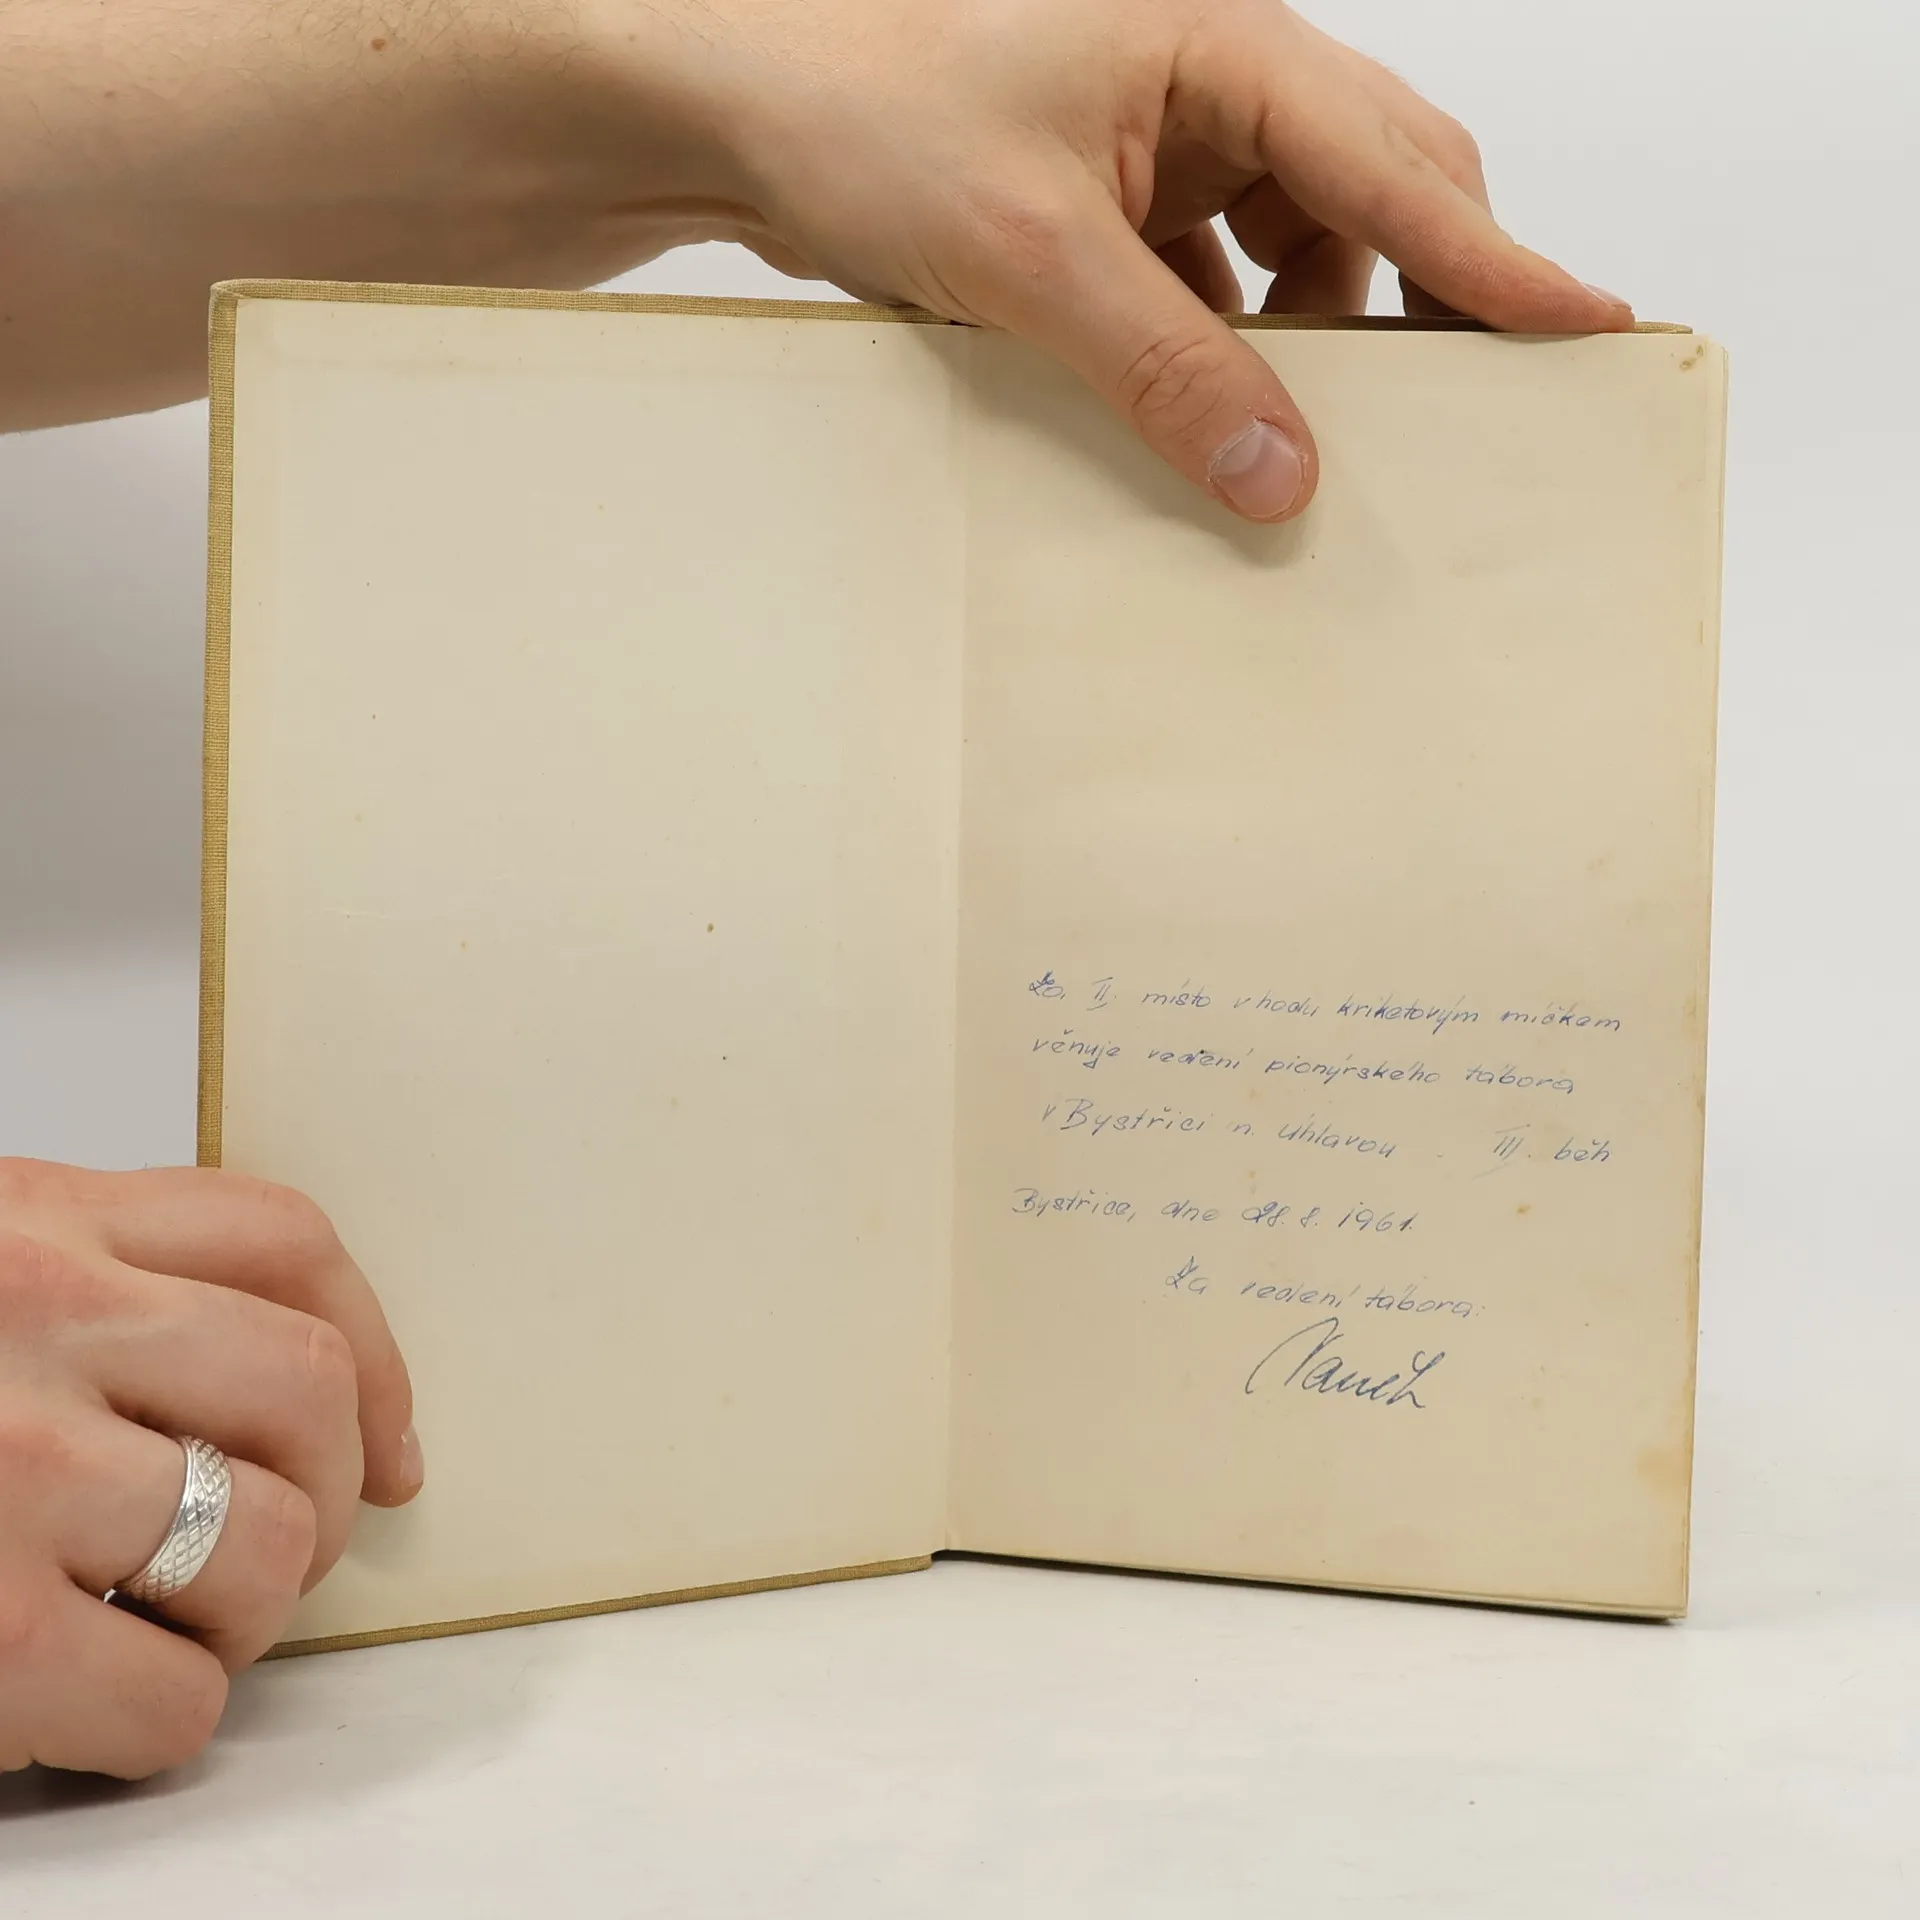 Za II. místo v hodu kriketovým míčkem
věnuje vedení pionýrského tábora
v Bystřici n. Úhlavou . III. běh
Bystřice, dne 28. 8. 1961.
Za vedení tábora:
Vaněk